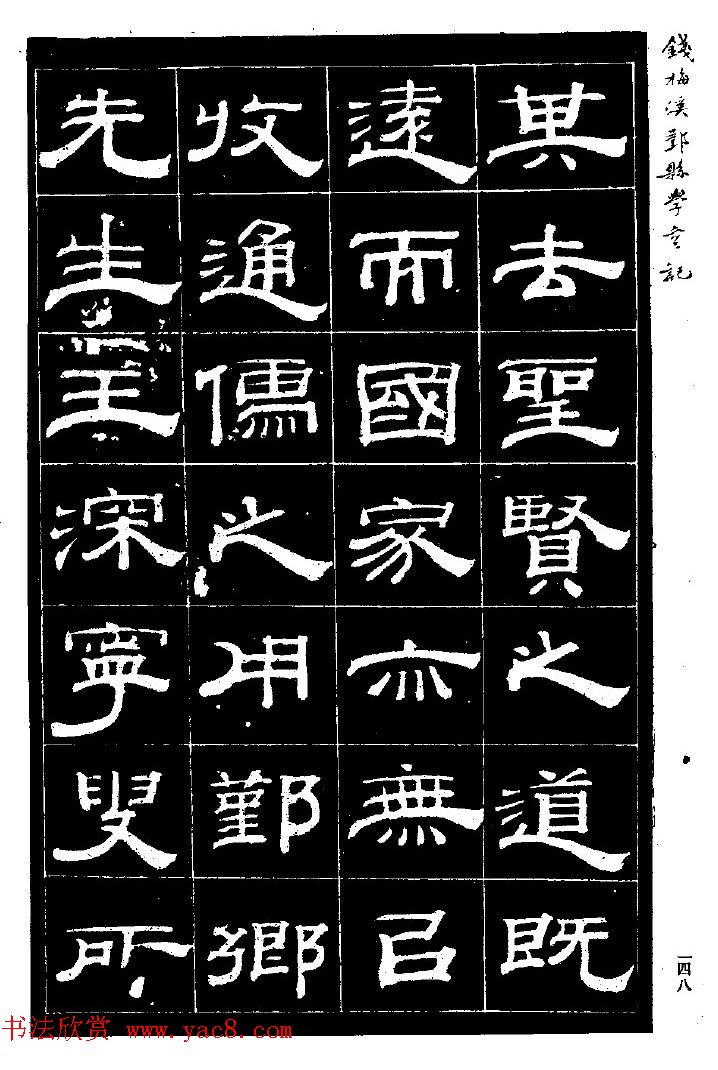 錢梅溪鄞縣學言記
其去聖賢之道既
遠而國家亦無㠯
收通儒之用鄞鄉
先生王深寧叟所
一四八
书法欣赏 www.yac8.com